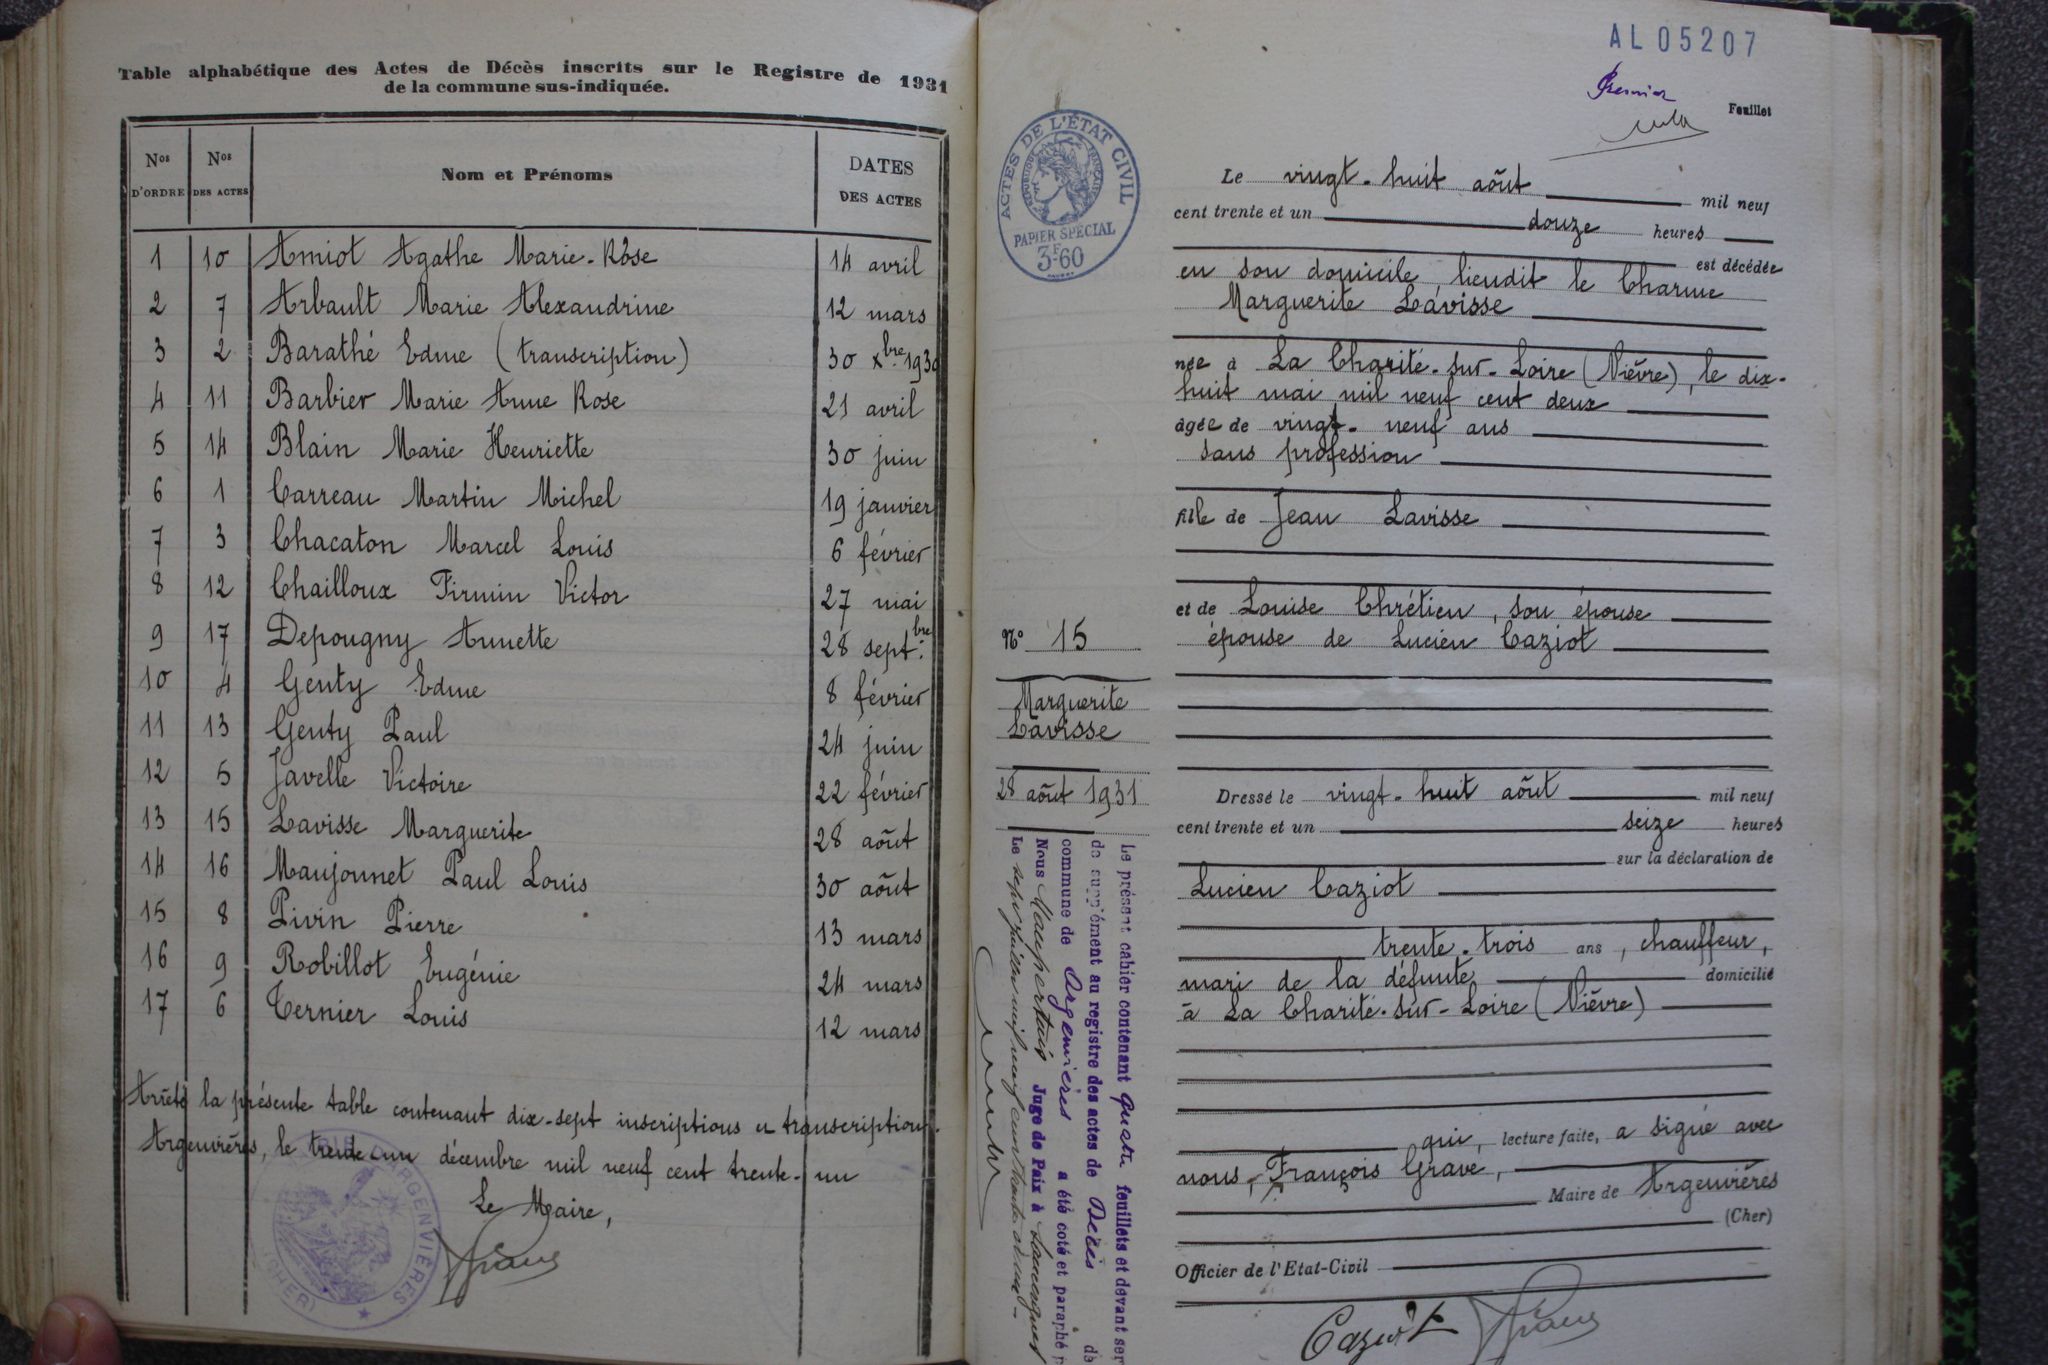 Table alphabétique des Actes de Décès inscrits sur le Registre de 1931
de la commune sus-indiquée.
Nos D'ORDRE Nos DES ACTES Nom et Prénoms DATES DES ACTES
1 10 Amiot Agathe Marie-Rose 14 avril
2 7 Arbault Marie Alexandrine 12 mars
3 2 Barathé Edme (transcription) 30 xbre 1930
4 11 Barbier Marie Anne Rose 21 avril
5 14 Blain Marie Henriette 30 juin
6 1 Carreau Martin Michel 19 janvier
7 3 Chacaton Marcel Louis 6 février
8 12 Chailloux Firmin Victor 27 mai
9 17 Depougny Annette 28 septbre
10 4 Genty Edme 8 février
11 13 Genty Paul 24 juin
12 5 Javelle Victoire 22 février
13 15 Lavisse Marguerite 28 août
14 16 Maujonnet Paul Louis 30 août
15 8 Pivin Pierre 13 mars
16 9 Robillot Eugénie 24 mars
17 6 Ternier Louis 12 mars
Arrêté la présente table contenant dix-sept inscriptions et transcriptions.
Argenvières, le trente un décembre mil neuf cent trente-un
Le Maire,
MAIRIE D'ARGENVIERES
(CHER)
AL05207
Premier Feuillet
ACTES DE L'ÉTAT CIVIL
RÉPUBLIQUE FRANÇAISE
PAPIER SPÉCIAL
3F60
Le vingt-huit août mil neuf
cent trente et un douze heures
est décédée
en son domicile lieudit le Charme
Marguerite Lavisse
née à La Charité-sur-Loire (Nièvre), le dix-
huit mai mil neuf cent deux
âgée de vingt-neuf ans
sans profession
fille de Jean Lavisse
et de Louise Chrétien, son épouse
épouse de Lucien Caziot
No 15
Marguerite
Lavisse
28 août 1931
Dressé le vingt-huit août mil neuf
cent trente et un seize heures
sur la déclaration de
Lucien Caziot
trente-trois ans, chauffeur,
mari de la défunte domicilié
à La Charité-sur-Loire (Nièvre)
qui, lecture faite, a signé avec
nous, François Grave,
Maire de Argenvières
(Cher)
Officier de l'Etat-Civil
Caziot
Le présent cahier contenant quatre feuillets et devant ser
de supplément au registre des actes de Décès de
commune de Argenvières a été coté et paraphé p
Nous Maupertuis Juge de Paix à Sancergues
Le